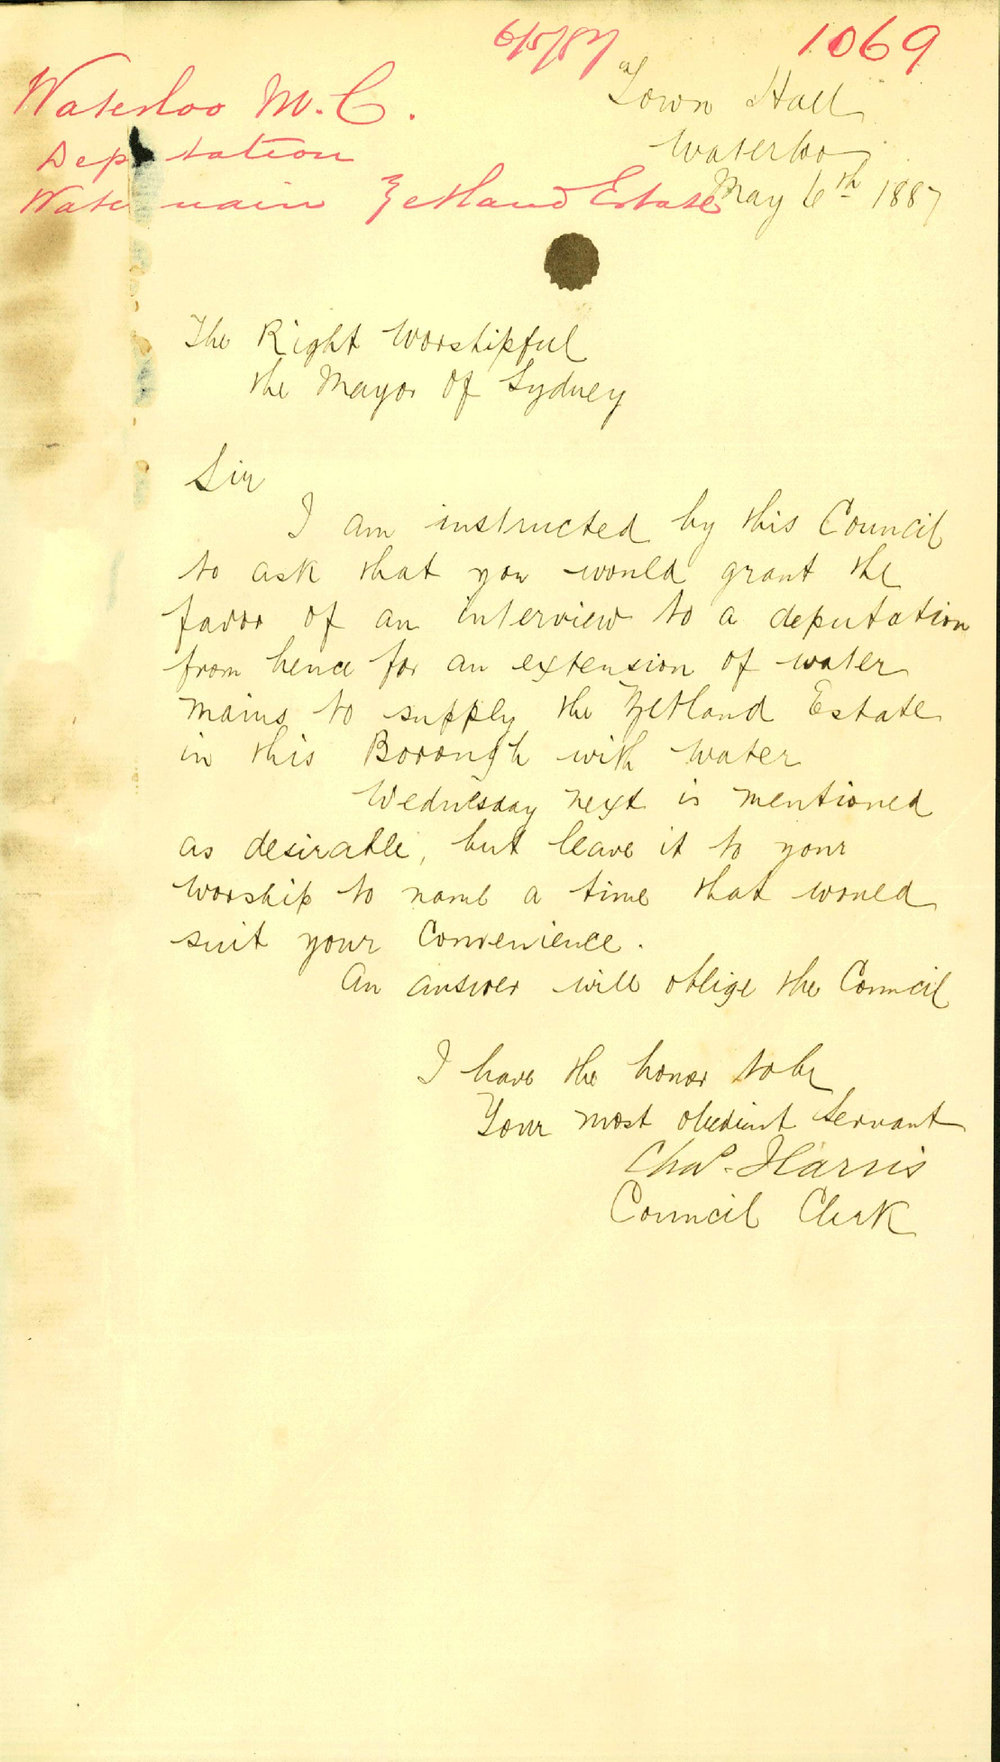 6/5/87
1069
Waterloo M.C.
Deputation
Water main Zetland Estate
"Town Hall"
Waterloo
May 6th 1887
The Right Worshipful
the Mayor of Sydney
Sir
I am instructed by this Council
to ask that you would grant the
favor of an interview to a deputation
from hence for an extension of water
mains to supply the Zetland Estate
in this Borough with water
Wednesday next is mentioned
as desirable, but leave it to your
worship to name a time that would
suit your Convenience.
An answer will oblige the Council
I have the honor to be
Your most obedient Servant
Chas. Harris
Council Clerk